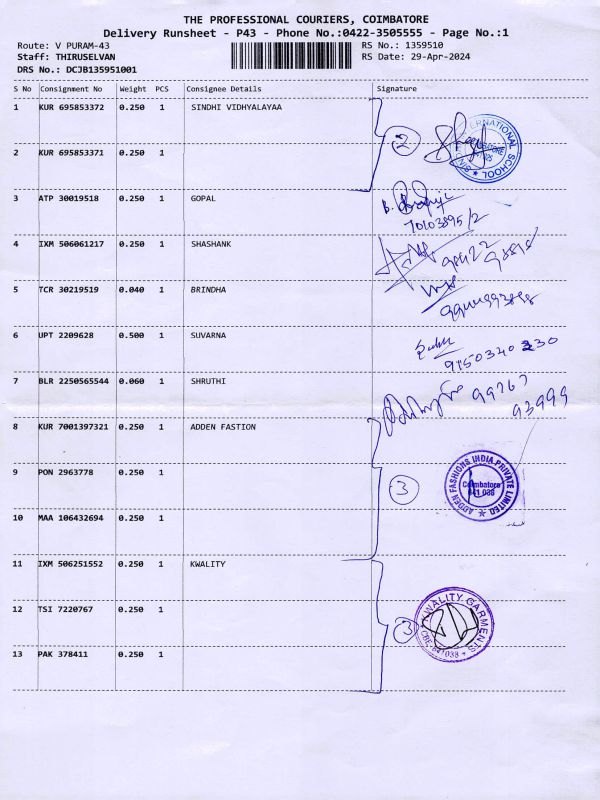 THE PROFESSIONAL COURIERS, COIMBATORE
Delivery Runsheet - P43 - Phone No.:0422-3505555 - Page No.:1
Route: V PURAM-43 RS No.: 1359510
Staff: THIRUSELVAN RS Date: 29-Apr-2024
DRS No.: DCJB135951001
S No Consignment No Weight PCS Consignee Details Signature
1 KUR 695853372 0.250 1 SINDHI VIDHYALAYAA
2 KUR 695853371 0.250 1
2
INTERNATIONAL SCHOOL
3 ATP 30019518 0.250 1 GOPAL
4 IXM 506061217 0.250 1 SHASHANK
5 TCR 30219519 0.040 1 BRINDHA
6 UPT 2209628 0.500 1 SUVARNA
9150340330
7 BLR 2250565544 0.060 1 SHRUTHI
99767
93999
8 KUR 7001397321 0.250 1 ADDEN FASTION
9 PON 2963778 0.250 1
3
ADDEN FASHIONS INDIA PRIVATE LIMITED
Coimbatore
641 038
10 MAA 106432694 0.250 1
11 IXM 506251552 0.250 1 KWALITY
12 TSI 7220767 0.250 1
3
KWALITY GARMENTS
CBE 641038
13 PAK 378411 0.250 1